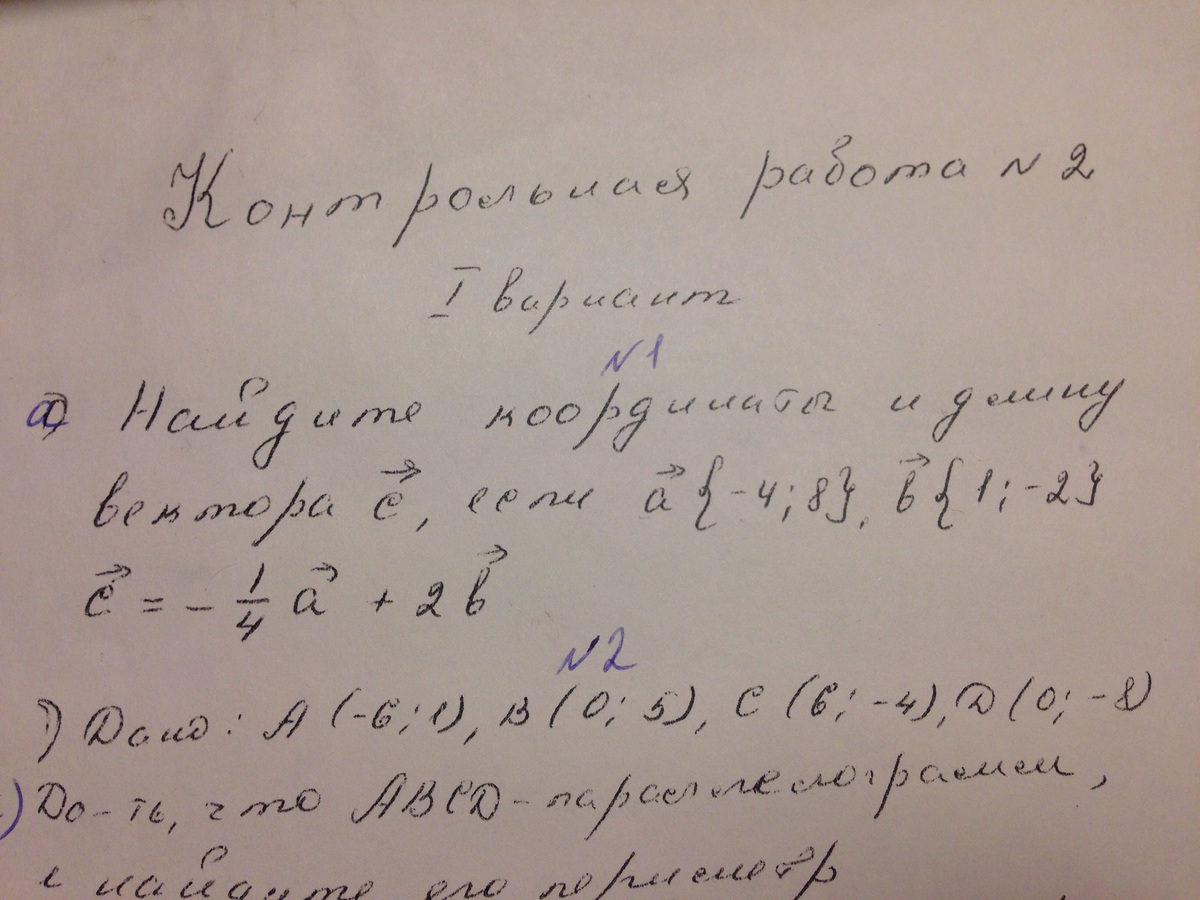 Контрольная работа N 2
I вариант
N1
а) Найдите координаты и длину
вектора c⃗, если a⃗ {-4; 8}, b⃗ {1; -2}
c⃗ = - 1/4 a⃗ + 2 b⃗
N2
) Дано: A (-6; 1), B (0; 5), C (6; -4), D (0; -8)
) До-ть, что ABCD - параллелограмм,
и найдите его периметр